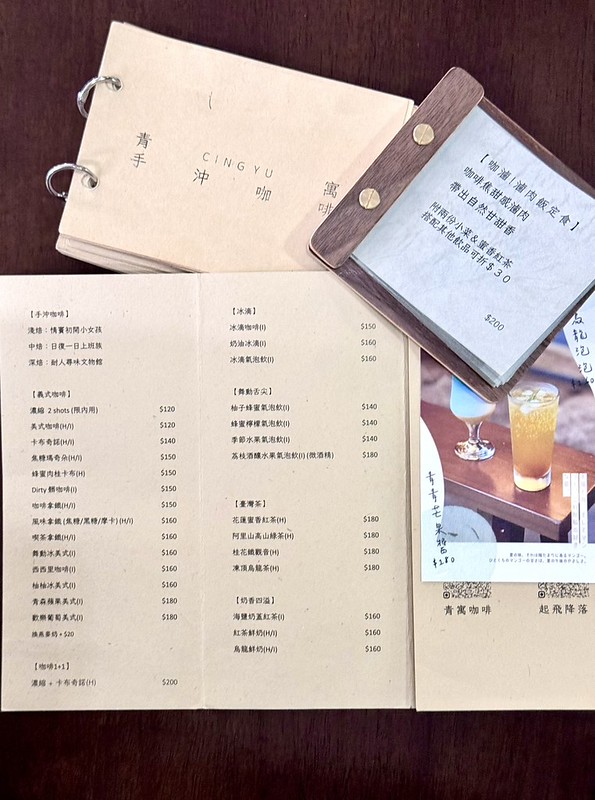 青
手
CINGYU
沖
咖
寓
啡
【咖滷|滷肉飯定食】
咖啡焦甜感滷肉
帶出自然甘甜香
附兩份小菜&蜜香紅茶
搭配其他飲品可折$30
$200
【手沖咖啡】
淺焙:情竇初開小女孩
中焙:日復一日上班族
深焙:耐人尋味文物館
【義式咖啡】
濃縮 2 shots (限內用) $120
美式咖啡(H/I) $120
卡布奇諾(H/I) $140
焦糖瑪奇朵(H/I) $150
蜂蜜肉桂卡布(H) $150
Dirty 髒咖啡(I) $150
咖啡拿鐵(H/I) $150
風味拿鐵(焦糖/黑糖/摩卡)(H/I) $160
喫茶拿鐵(H/I) $160
舞動冰美式(I) $160
西西里咖啡(I) $160
柚柚冰美式(I) $160
青森蘋果美式(I) $180
歡樂葡萄美式(I) $180
換燕麥奶 + $20
【咖啡1+1】
濃縮 + 卡布奇諾(H) $200
【冰滴】
冰滴咖啡(I) $150
奶油冰滴(I) $160
冰滴氣泡飲(I) $160
【舞動舌尖】
柚子蜂蜜氣泡飲(I) $140
蜂蜜檸檬氣泡飲(I) $140
季節水果氣泡飲(I) $140
荔枝酒釀水果氣泡飲(I) (微酒精) $180
【臺灣茶】
花蓮蜜香紅茶(H) $180
阿里山高山綠茶(H) $180
桂花鐵觀音(H) $180
凍頂烏龍茶(H) $180
【奶香四溢】
海鹽奶蓋紅茶(I) $160
紅茶鮮奶(H/I) $160
烏龍鮮奶(H/I) $160
龍泡泡
青青芒果醬
$180
青寓咖啡
起飛降落